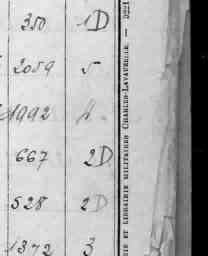 350 1D
2059 5
1992 4
667 2D
528 2D
1372 3
IE ET LIBRAIRIE MILITAIRES CHARLES-LAVAUZELLE. — 222